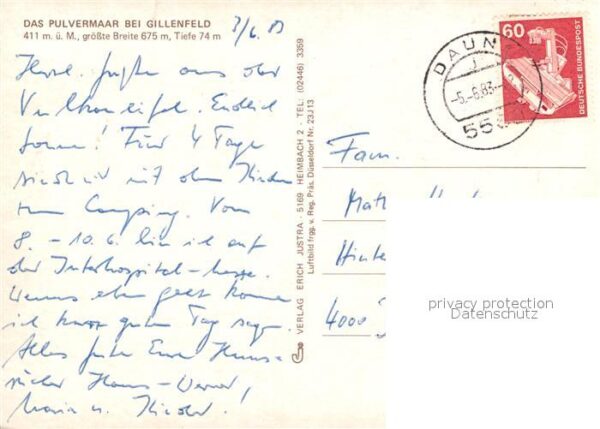 DAS PULVERMAAR BEI GILLENFELD
411 m. ü. M., größte Breite 675 m, Tiefe 74 m
3/6. 83
Herzl. Grüße aus der
Vulkaneifel. Endlich
Sonne! Für 4 Tage
sind wir mit den Kindern
zum Camping. Vom
8. - 10.6. bin ich auf
der Interhospital-messe.
Wenns eben geht komme
ich kurz guten Tag sagen.
Alles Gute Eure
Hans-Werner,
Maria u. Kinder!
VERLAG ERICH JUSTRA · 5169 HEIMBACH 2 · TEL. (02446) 3359
Luftbild frgg. v. Reg. Präs. Düsseldorf Nr. 23J13
DAUN
-5.-6.83-
555
60
DEUTSCHE BUNDESPOST
Fam.
4000
privacy protection
Datenschutz